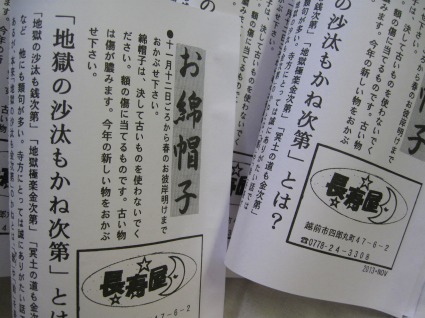 お綿帽子
●十一月十二日ごろから春のお彼岸明けまで
おかぶせ下さい。
綿帽子は、決して古いものを使わないでく
ださい。額の傷に当てるものです。古い物
は傷が膿みます。今年の新しい物をおかぶ
せ下さい。
「地獄の沙汰もかね次第」とは
「地獄の沙汰も銭次第」「地獄極楽金次第」「冥土の道も金次
など、他にも類句が多い。寺方にとっては誠にありがたい話で
長寿屋
47-6-2
使わないでく
のです。古い物
今年の新しい物をおかぶ
せ下さい。
「地獄の沙汰もかね次第」とは？
も銭次第」「地獄極楽金次第」「冥土の道も金次
句が多い。寺方にとっては誠にありがたい話では
長寿屋
越前市四郎丸町47-6-2
☎0778-24-3308
2013-NOV